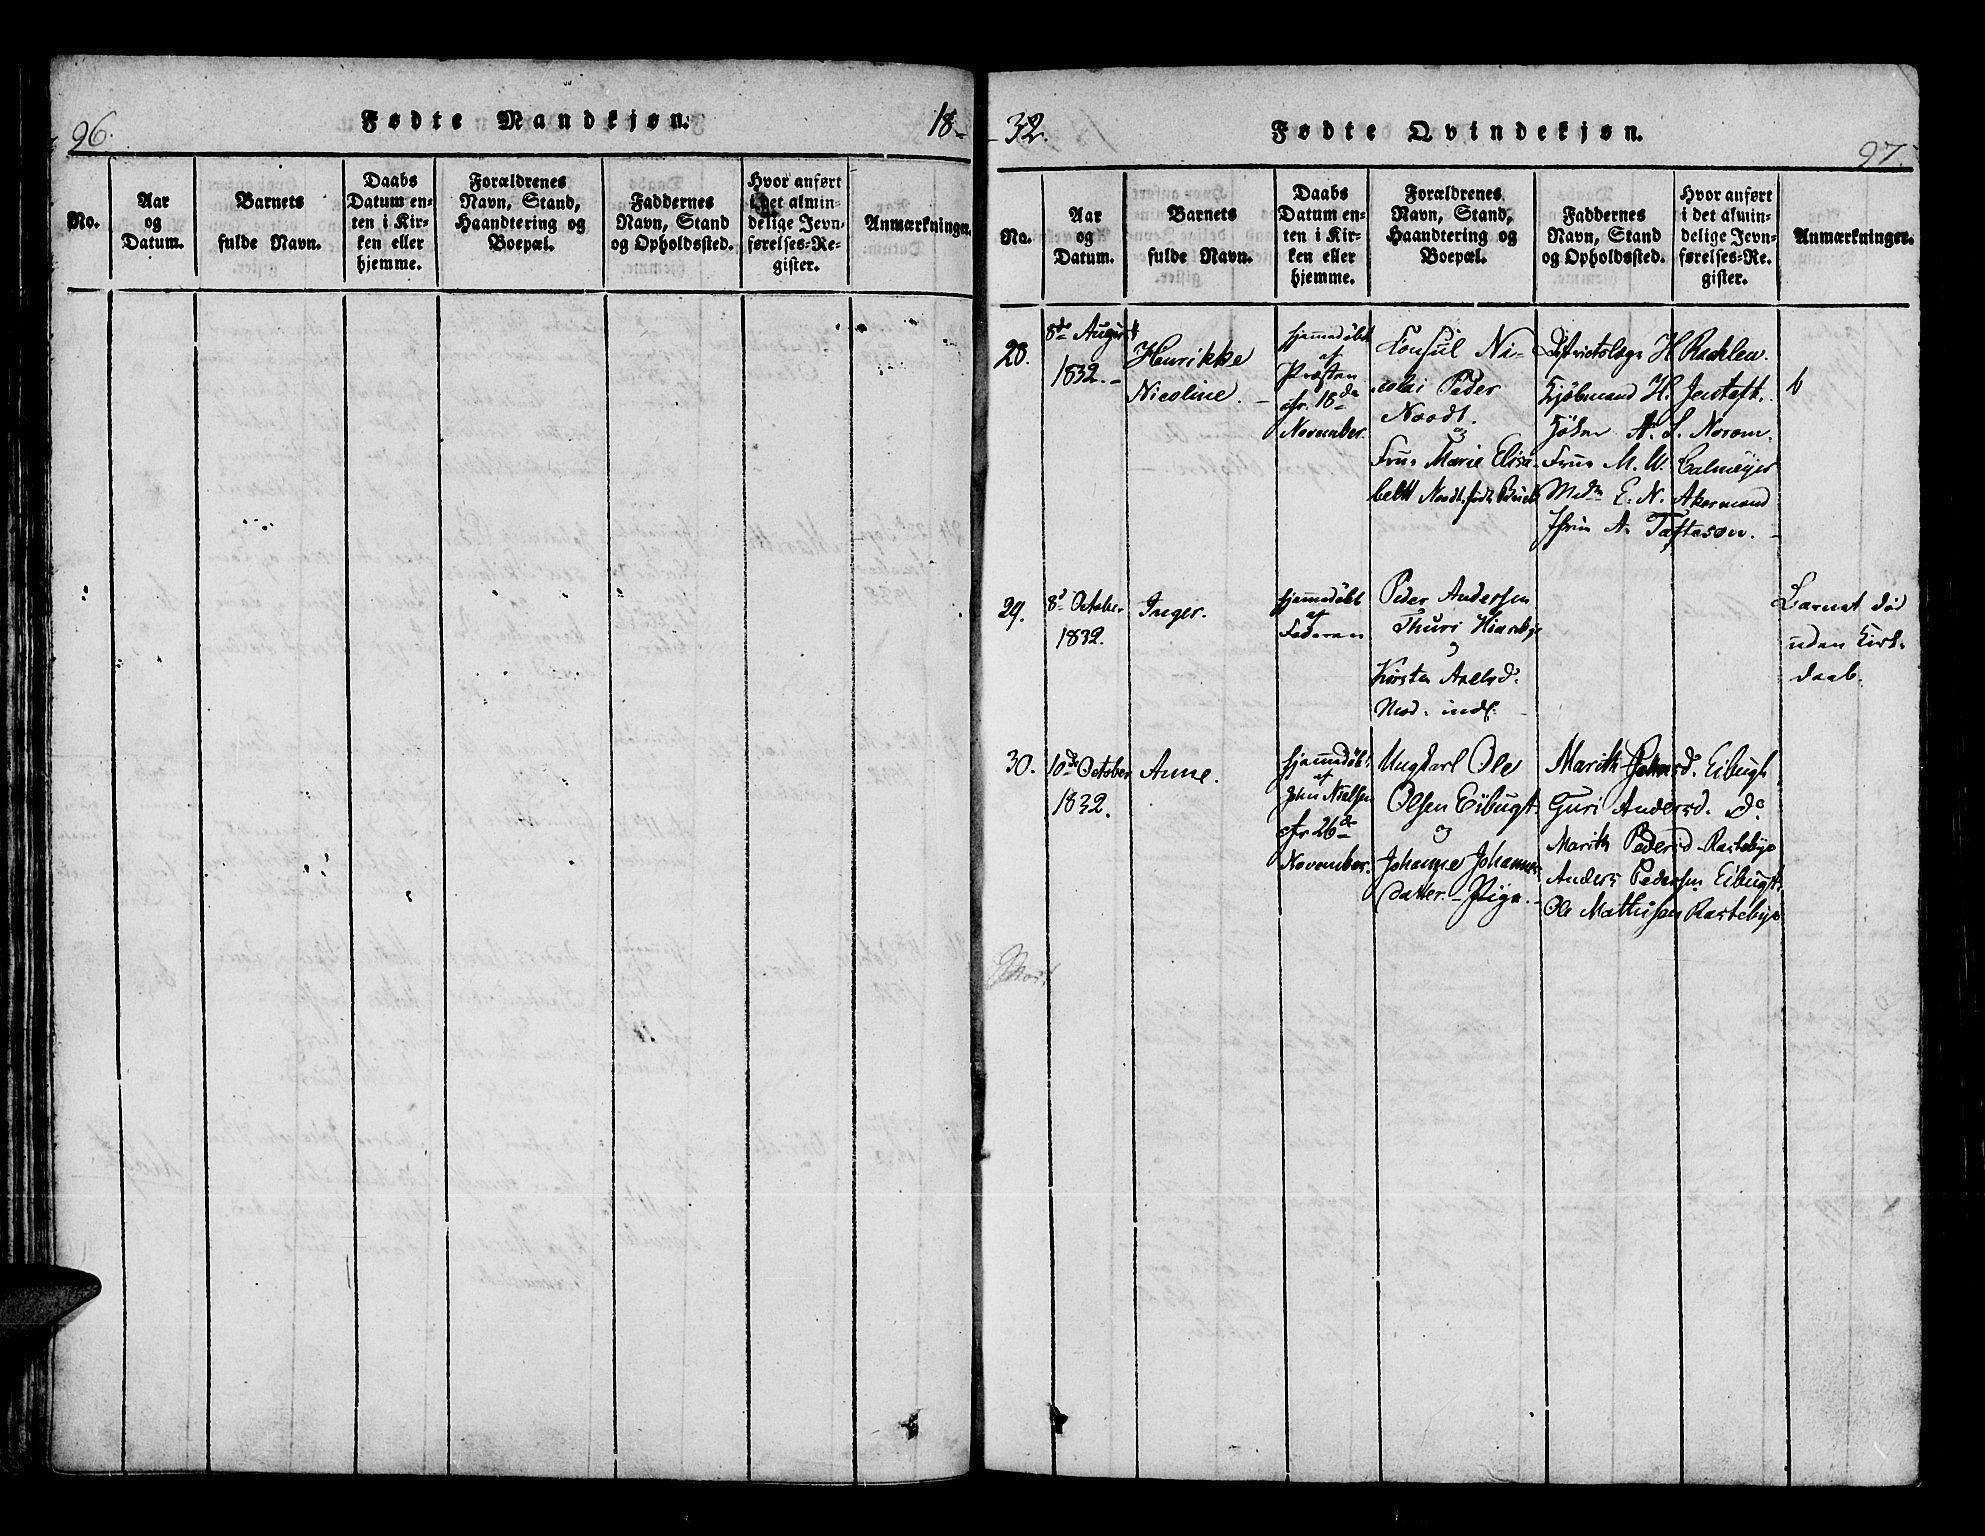 96.
Fødte Mandkjøn.
18-
No.
Aar
og
Datum.
Barnets
fulde Navn.
Daabs
Datum en-
ten i Kir-
ken eller
hjemme.
Forældrenes
Navn, Stand,
Haandtering og
Boepæl.
Faddernes
Navn, Stand
og Opholdssted.
Hvor anført
i det almin-
delige Jevn-
førelses-Re-
gister.
Anmærkninger.
32.
Fødte Qvindekjøn.
97.
No.
Aar
og
Datum.
Barnets
fulde Navn.
Daabs
Datum en-
ten i Kir-
ken eller
hjemme.
Forældrenes
Navn, Stand,
Haandtering og
Boepæl.
Faddernes
Navn, Stand
og Opholdssted.
Hvor anført
i det almin-
delige Jevn-
førelses-Re-
gister.
Anmærkninger.
28.
8de August
1832.-
Henrikke
Nicoline.
hjemmedøbt
af
Præsten
cfr. 18de
November.
Consul Ni-
colai Peder
Noodt.
og
Frue Marie Elisa-
beth Noodt, født
Districtslæge H.
Kjøbmand H. Jentoft.
A. S. Norom.
Frue M. W. Calmeyer
Mdm E. N. Akermand
A. Taftesøn.
b
29.
8d October
1832.
Inger.
hjemmedøbt
af
Faderen
Peder Andersen
Thuri
og
Kirsten Axelsd.
Barnet død
uden Kirk-
daab.
30.
10de October
1832.
Anne.
hjemmedøbt
af
John Nielsen
cfr 26de
November.
Ungkarl Ole
Olsen Eibugt.
og
Johanne Johannes-
datter. - Pige.-
Marith Johnsd. Eibugt
Guri Andersd. do
Marith Pedersd Rastebye
Anders Pedersen Eibugt.
Ole Mathisen Rastebye